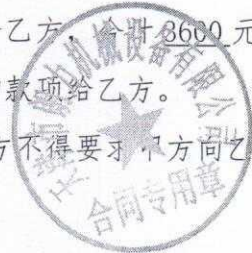 乙方，合计 3600 元
款项给乙方。
方不得要求甲方向乙
机械设备有限公司
合同专用章